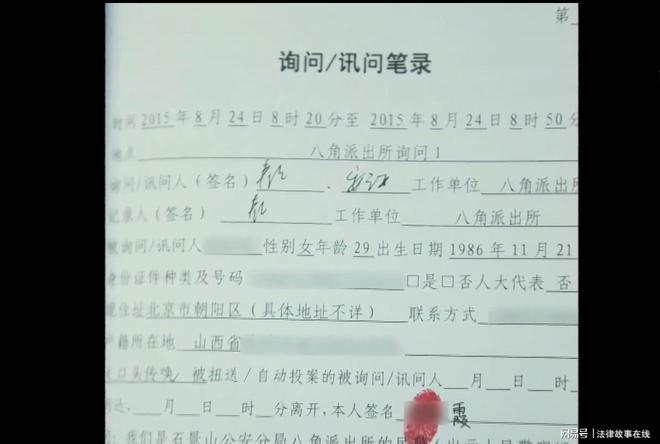 第
询问/讯问笔录
时间 2015 年 8 月 24 日 8 时 20 分至 2015 年 8 月 24 日 8 时 50 分
地点 八角派出所询问 1
询问/讯问人（签名） 、 工作单位 八角派出所
记录人（签名） 工作单位 八角派出所
被询问/讯问人 性别 女 年龄 29 出生日期 1986 年 11 月 21
身份证件种类及号码 □是□否人大代表 否
现住址 北京市朝阳区（具体地址不详） 联系方式
户籍所在地 山西省
口头传唤/被扭送/自动投案的被询问/讯问人 月 日 时
到达， 月 日 时 分离开，本人签名 霞
问：我们是石景山公安分局八角派出所的民警
网易号 | 法律故事在线